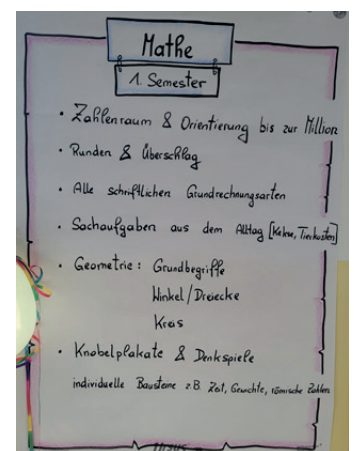 Mathe
1. Semester
• Zahlenraum & Orientierung bis zur Million
• Runden & Überschlag
• Alle schriftlichen Grundrechnungsarten
• Sachaufgaben aus dem Alltag [Kekse, Tierkosten]
• Geometrie: Grundbegriffe
Winkel/Dreiecke
Kreis
• Knobelplakate & Denkspiele
individuelle Bausteine z.B. Zeit, Gewichte, römische Zahlen